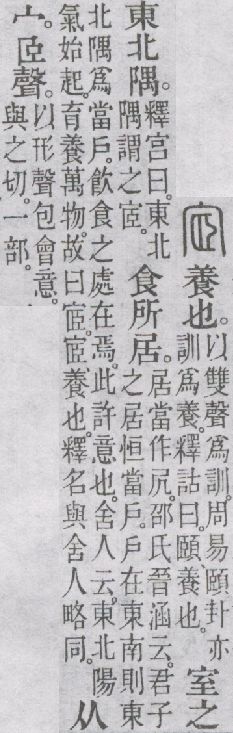 宧
養也。
以雙聲爲訓。周易頤卦亦
訓爲養。釋詁曰。頤、養也。
室之
東北隅。
釋宮曰。東北
隅謂之宧。
食所居。
居當作凥。邵氏晉涵云。君子
之居恒當戶。戶在東南則東
北隅爲當戶。飲食之處在焉。此許意也。舍人云。東北陽
氣始起。育養萬物。故曰宧。宧、養也。釋名與舍人略同。
从
宀。𦣞聲。
以形聲包會意。
與之切。一部。